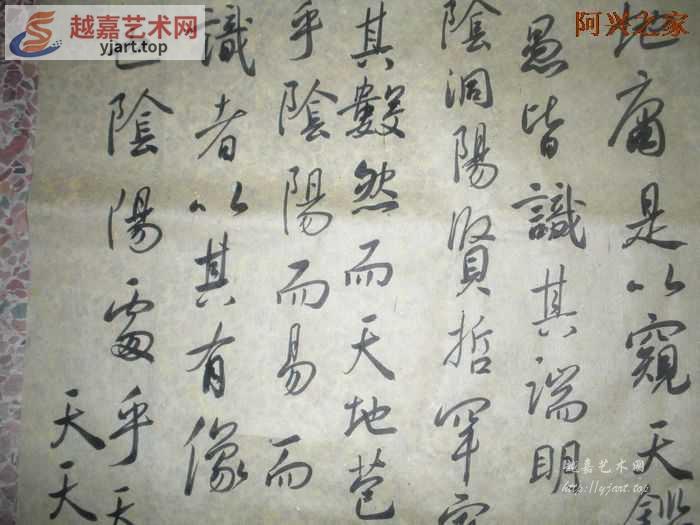 越嘉艺术网
yjart.top
阿兴之家
地庸是以窺天
愚皆識其端明
陰洞陽賢哲罕
其數然而天地苞
乎陰陽而易而
識者以其有像
也陰陽處乎天
天天
越嘉艺术网
http://yjart.top